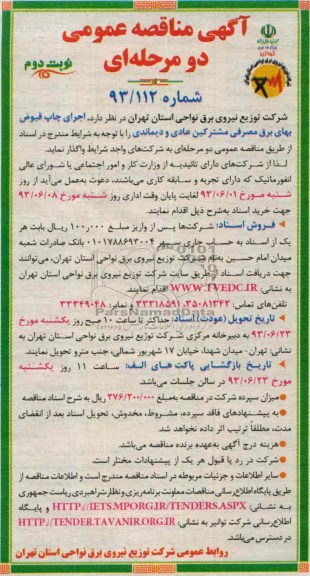 آگهی مناقصه عمومی
دو مرحله‌ای
نوبت دوم
شماره ۹۳/۱۱۲
شرکت توزیع نیروی برق نواحی استان تهران در نظر دارد، اجرای چاپ قبوض
بهای برق مصرفی مشترکین عادی و دیماندی را با توجه به شرایط مندرج در اسناد
از طریق مناقصه عمومی دو مرحله‌ای به شرکت‌های واجد شرایط واگذار نماید.
لذا از شرکت‌های دارای تائیدیه از وزارت کار و امور اجتماعی یا شورای عالی
انفورماتیک که دارای تجربه و سابقه کاری می‌باشند، دعوت به‌عمل می‌آید از روز
شنبه مورخ ۹۳/۰۶/۰۱ لغایت پایان وقت اداری روز شنبه مورخ ۹۳/۰۶/۰۸
جهت خرید اسناد به‌شرح ذیل اقدام نمایند.
فروش اسناد: شرکت‌ها پس از واریز مبلغ ۱۰۰٫۰۰۰ ریال بابت هر
یک از اسناد به حساب جاری سپهر ۰۱۰۱۷۸۸۶۹۳۰۰۴ بانک صادرات شعبه
میدان امام حسین به‌نام شرکت توزیع نیروی برق نواحی استان تهران، می‌توانند
جهت دریافت اسناد از طریق سایت شرکت توزیع نیروی برق نواحی استان تهران
به نشانی: WWW.TVEDC.IR اقدام نمایند.
تلفن‌های تماس: ۳۵۰۸۱۳۴۳، ۳۳۳۱۸۵۹۱ و نمابر: ۳۳۳۴۹۰۴۸
تاریخ تحویل (عودت) اسناد: حداکثر تا ساعت ۱۰ صبح روز یکشنبه مورخ
۹۳/۰۶/۲۳ به دبیرخانه مرکزی شرکت توزیع نیروی برق نواحی استان تهران به
نشانی: تهران - میدان شهدا، خیابان ۱۷ شهریور شمالی، جنب مترو تحویل نمایند.
تاریخ بازگشایی پاکت های الف: ساعت ۱۱ روز یکشنبه
مورخ ۹۳/۰۶/۲۳ در سالن جلسات می‌باشد.
میزان سپرده شرکت در مناقصه به‌مبلغ ۲۷۶/۲۰۰/۰۰۰ ریال به شرح اسناد مناقصه
به پیشنهادهای فاقد سپرده، مشروط، مخدوش، تحویل اسناد بعد از انقضای
مدت، مطلقاً ترتیب اثر داده نخواهد شد.
هزینه درج آگهی به‌عهده برنده مناقصه می‌باشد.
شرکت در رد یا قبول هر یک از پیشنهادات مختار است.
سایر اطلاعات و جزئیات مربوطه در اسناد مناقصه مندرج است و اطلاعات مناقصه از
طریق پایگاه اطلاع رسانی مناقصات معاونت برنامه‌ریزی و نظارت راهبردی ریاست جمهوری
به نشانی: HTTP://IETS.MPORG.IR/TENDERS.ASPX و پایگاه
اطلاع‌رسانی شرکت توانیر به نشانی: HTTP://TENDER.TAVANIR.ORG.IR
در دسترس می‌باشد.
روابط عمومی شرکت توزیع نیروی برق نواحی استان تهران